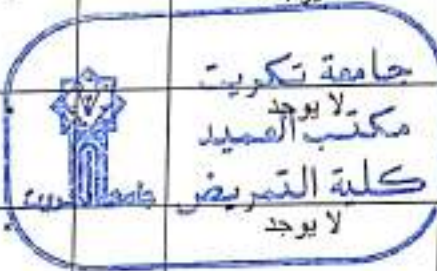 جامعة تكريت
لا يوجد
مكتب العميد
كلية التمريض
لا يوجد